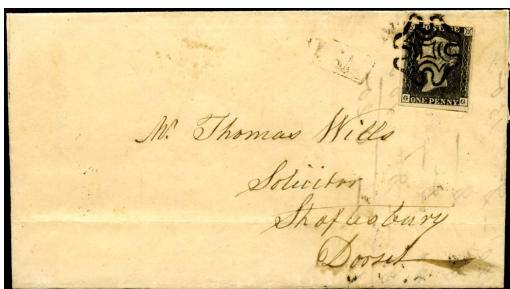 G ONE PENNY G
Mr. Thomas Wills
Solicitor
Shaftesbury
Dorset